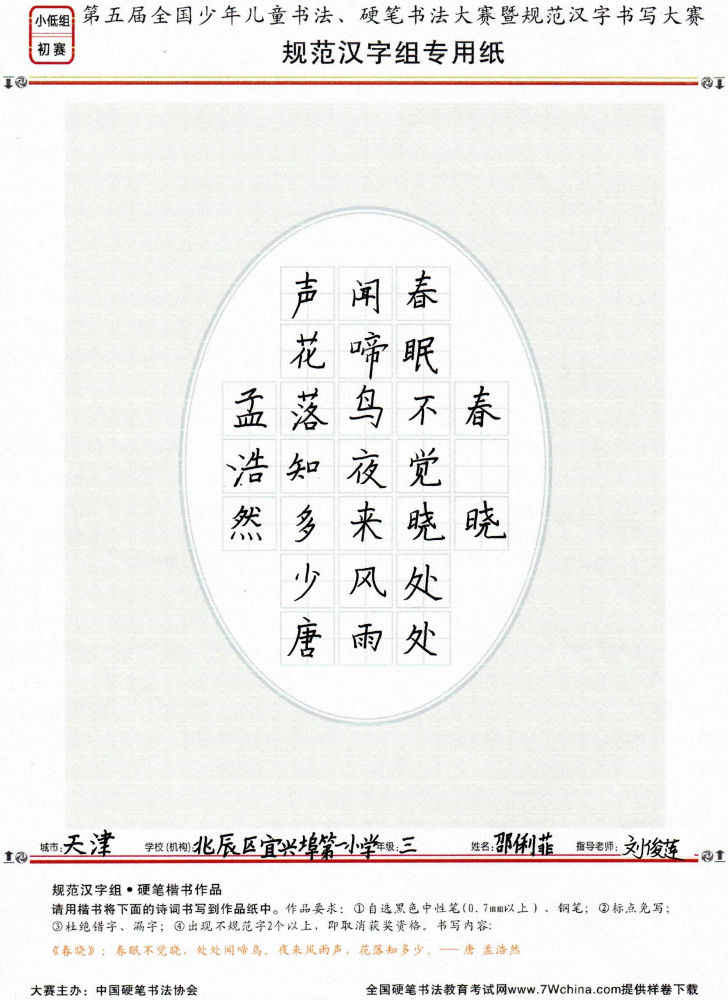 小低组
初赛
第五届全国少年儿童书法、硬笔书法大赛暨规范汉字书写大赛
规范汉字组专用纸
春晓
春眠不觉晓处处
闻啼鸟夜来风雨
声花落知多少唐
孟浩然
城市:天津 学校(机构):北辰区宜兴埠第一小学 年级:三 姓名:邵俐菲 指导老师:刘俊莲
规范汉字组·硬笔楷书作品
请用楷书将下面的诗词书写到作品纸中。作品要求：①自选黑色中性笔(0.7mm以上)、钢笔；②标点免写；
③杜绝错字、漏字；④出现不规范字2个以上，即取消获奖资格。书写内容:
《春晓》：春眠不觉晓，处处闻啼鸟。夜来风雨声，花落知多少。——唐 孟浩然
大赛主办：中国硬笔书法协会 全国硬笔书法教育考试网www.7Wchina.com提供样卷下载